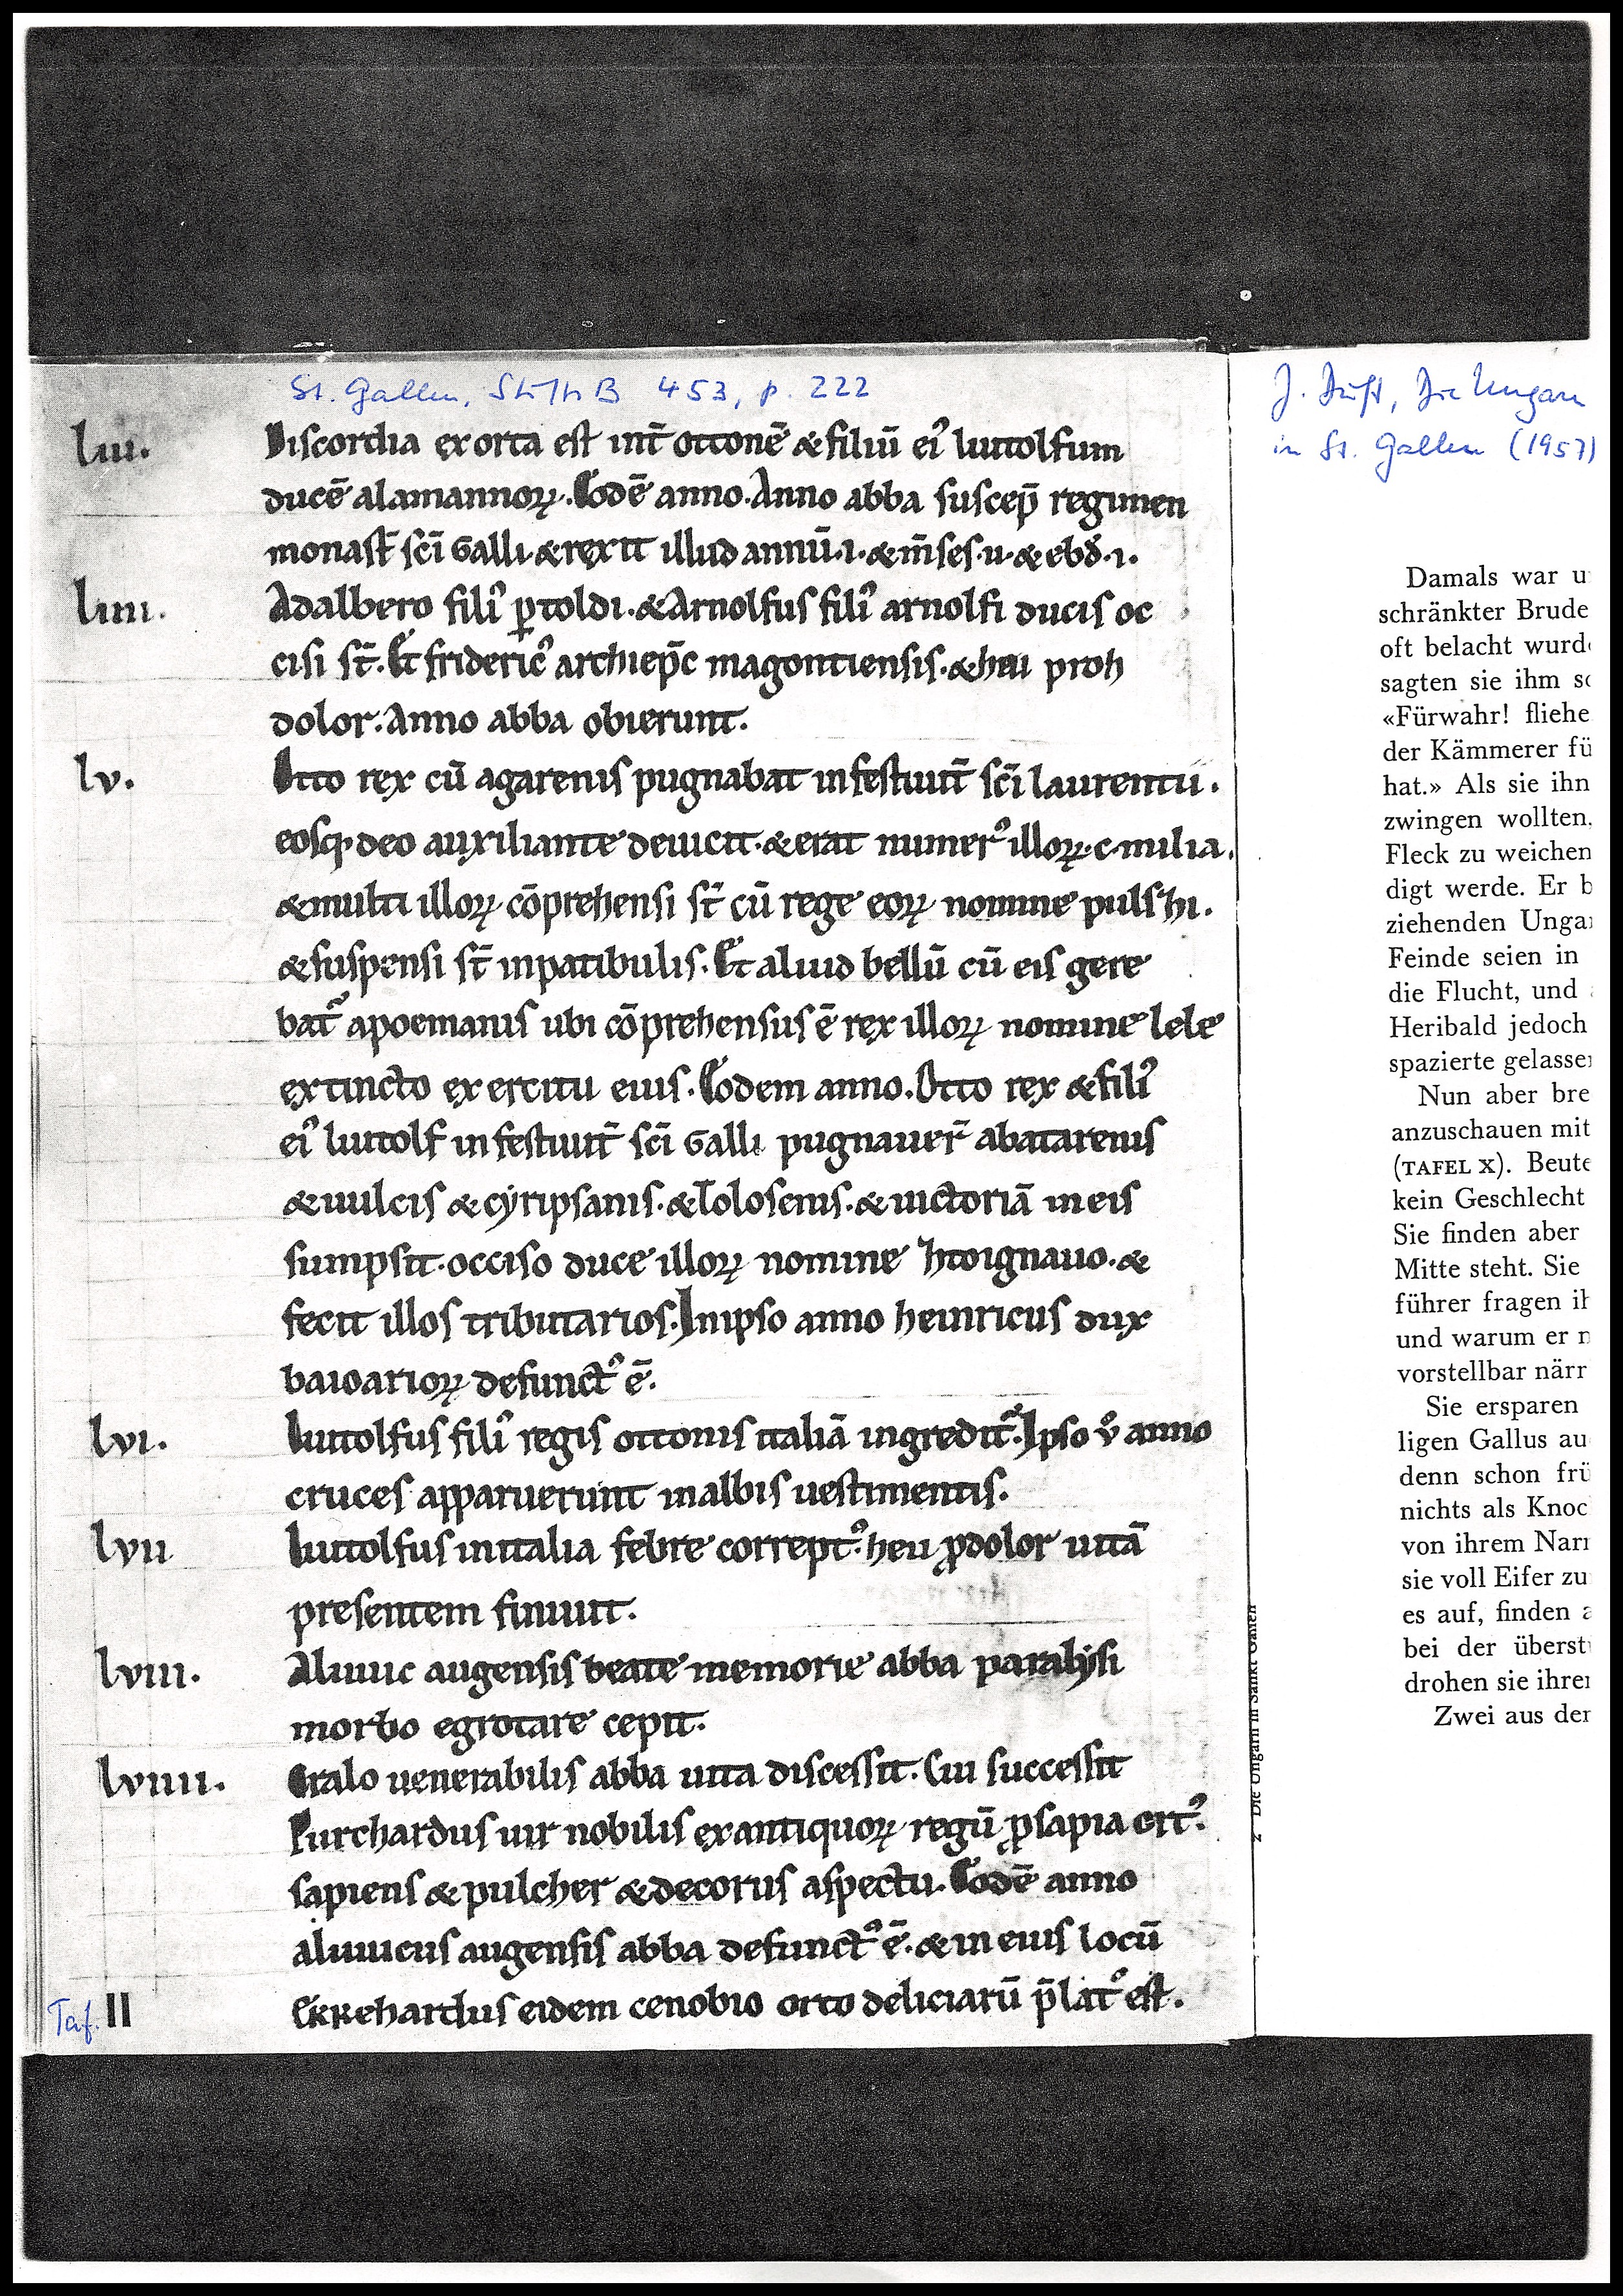 St. Gallen, StiftsB 453, p. 222
liii. Discordia exorta est int̄ ottonē & filiū ei᾽ liutolfum
ducē alamannoꝝ. Eodē anno. Anno abba suscep̄ regimen
monast̄ sc̄i Galli. & rexit illud annū. i. & m̄ses. u. & ebd̄. i.
liiii. Adalbero fili᾽ ꝑtoldi. & Arnolfus fili᾽ arnolfi ducis oc
cisi st̄. Et frideric᾽ archiep̄c magontiensis. & heu proh
dolor. Anno abba obierunt.
lv. Otto rex cū agarenis pugnabat in festiuit̄ sc̄i laurentii.
eosq; deo auxiliante deuicit. & erat numer᾽ illoꝝ. c. milia.
& multi illoꝝ cōprehensi st̄ cū rege eoꝝ nomine pulszhi.
& suspensi st̄ inpatibulis. Et aliud bellū cū eis gere
bat᷑ apoemanis ubi cōprehensus ē rex illoꝝ nomine lele
extincto exercitu eius. Eodem anno. Otto rex & fili᾽
ei᾽ liutolf in festiuit̄ sc̄i Galli pugnauer̄ abatarenis
& uulcis & cyripsanis. & Tolosenis. & uictoriā in eis
sumpsit. occiso duce illoꝝ nomine ztoignauo. &
fecit illos tributarios. In ipso anno heinricus dux
baioarioꝝ defunct᾽ ē.
lvi. Liutolfus fili᾽ regis ottonis italiā ingredit᷑. Ipso v̊ anno
cruces apparuerunt in albis uestimentis.
lvii Liutolfus in italia febre corrept᾽. heu ꝓdolor uitā
presentem finiuit.
lviii. Aliuuic augensis beate memorie abba paralysi
morbo egrotare cepit.
lviiii. Cralo uenerabilis abba uita discessit. Cui successit
Purchardus uir nobilis ex antiquoꝝ regū ꝓsapia ort᾽.
sapiens & pulcher & decorus aspectu. Eodē anno
aliuuicus augensis abba defunct᾽ ē. & in eius locū
Ekkehardus eidem cenobio orto deliciarū p̄lat᾽ est.
Taf. II
J. Duft, Die Ungarn
in St. Gallen (1957)
2 Die Ungarn in Sankt Gallen
Damals war u
schränkter Brude
oft belacht wurd
sagten sie ihm so
«Fürwahr! fliehe
der Kämmerer fü
hat.» Als sie ihn
zwingen wollten,
Fleck zu weichen
digt werde. Er b
ziehenden Ungar
Feinde seien in
die Flucht, und
Heribald jedoch
spazierte gelasse
Nun aber bre
anzuschauen mit
(TAFEL X). Beute
kein Geschlecht
Sie finden aber
Mitte steht. Sie
führer fragen ih
und warum er n
vorstellbar närr
Sie ersparen
ligen Gallus au
denn schon frü
nichts als Knoc
von ihrem Narr
sie voll Eifer zu
es auf, finden a
bei der überst
drohen sie ihre
Zwei aus der